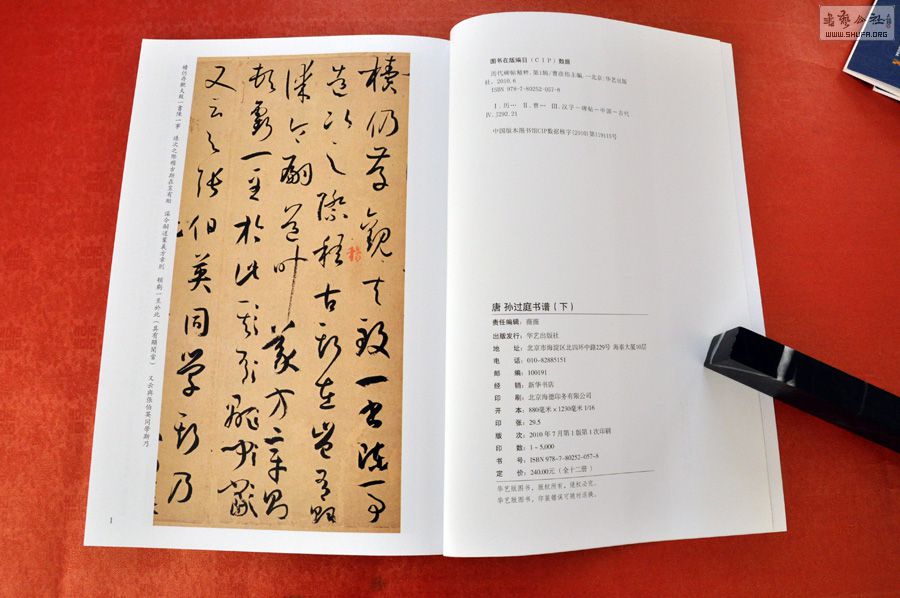 書藝公社
WWW.SHUFA.ORG
图书在版编目(CIP)数据
历代碑帖精粹. 第1辑/曹彦伟主编. —北京:华艺出版
社, 2010.6
ISBN 978-7-80252-057-8
Ⅰ.历… Ⅱ.曹… Ⅲ.汉字-碑帖-中国-古代
Ⅳ.J292.21
中国版本图书馆CIP数据核字(2010)第119115号
唐 孙过庭书谱(下)
责任编辑:薇薇
出版发行:华艺出版社
地 址:北京市海淀区北四环中路229号 海泰大厦10层
电 话:010-82885151
邮 编:100191
经 销:新华书店
印 刷:北京海德印务有限公司
开 本:880毫米×1230毫米 1/16
印 张:29.5
版 次:2010年7月第1版第1次印刷
印 数:1-5,000
书 号:ISBN 978-7-80252-057-8
定 价:240.00元(全十二册)
华艺版图书,版权所有,侵权必究。
华艺版图书,印装错误可随时退换。
櫝仍存觀夫致一書陳一事
造次之際稽古斯在豈有貽
謀令嗣道葉義方章則
頓虧一至於此
又云與張伯英同學斯乃
1